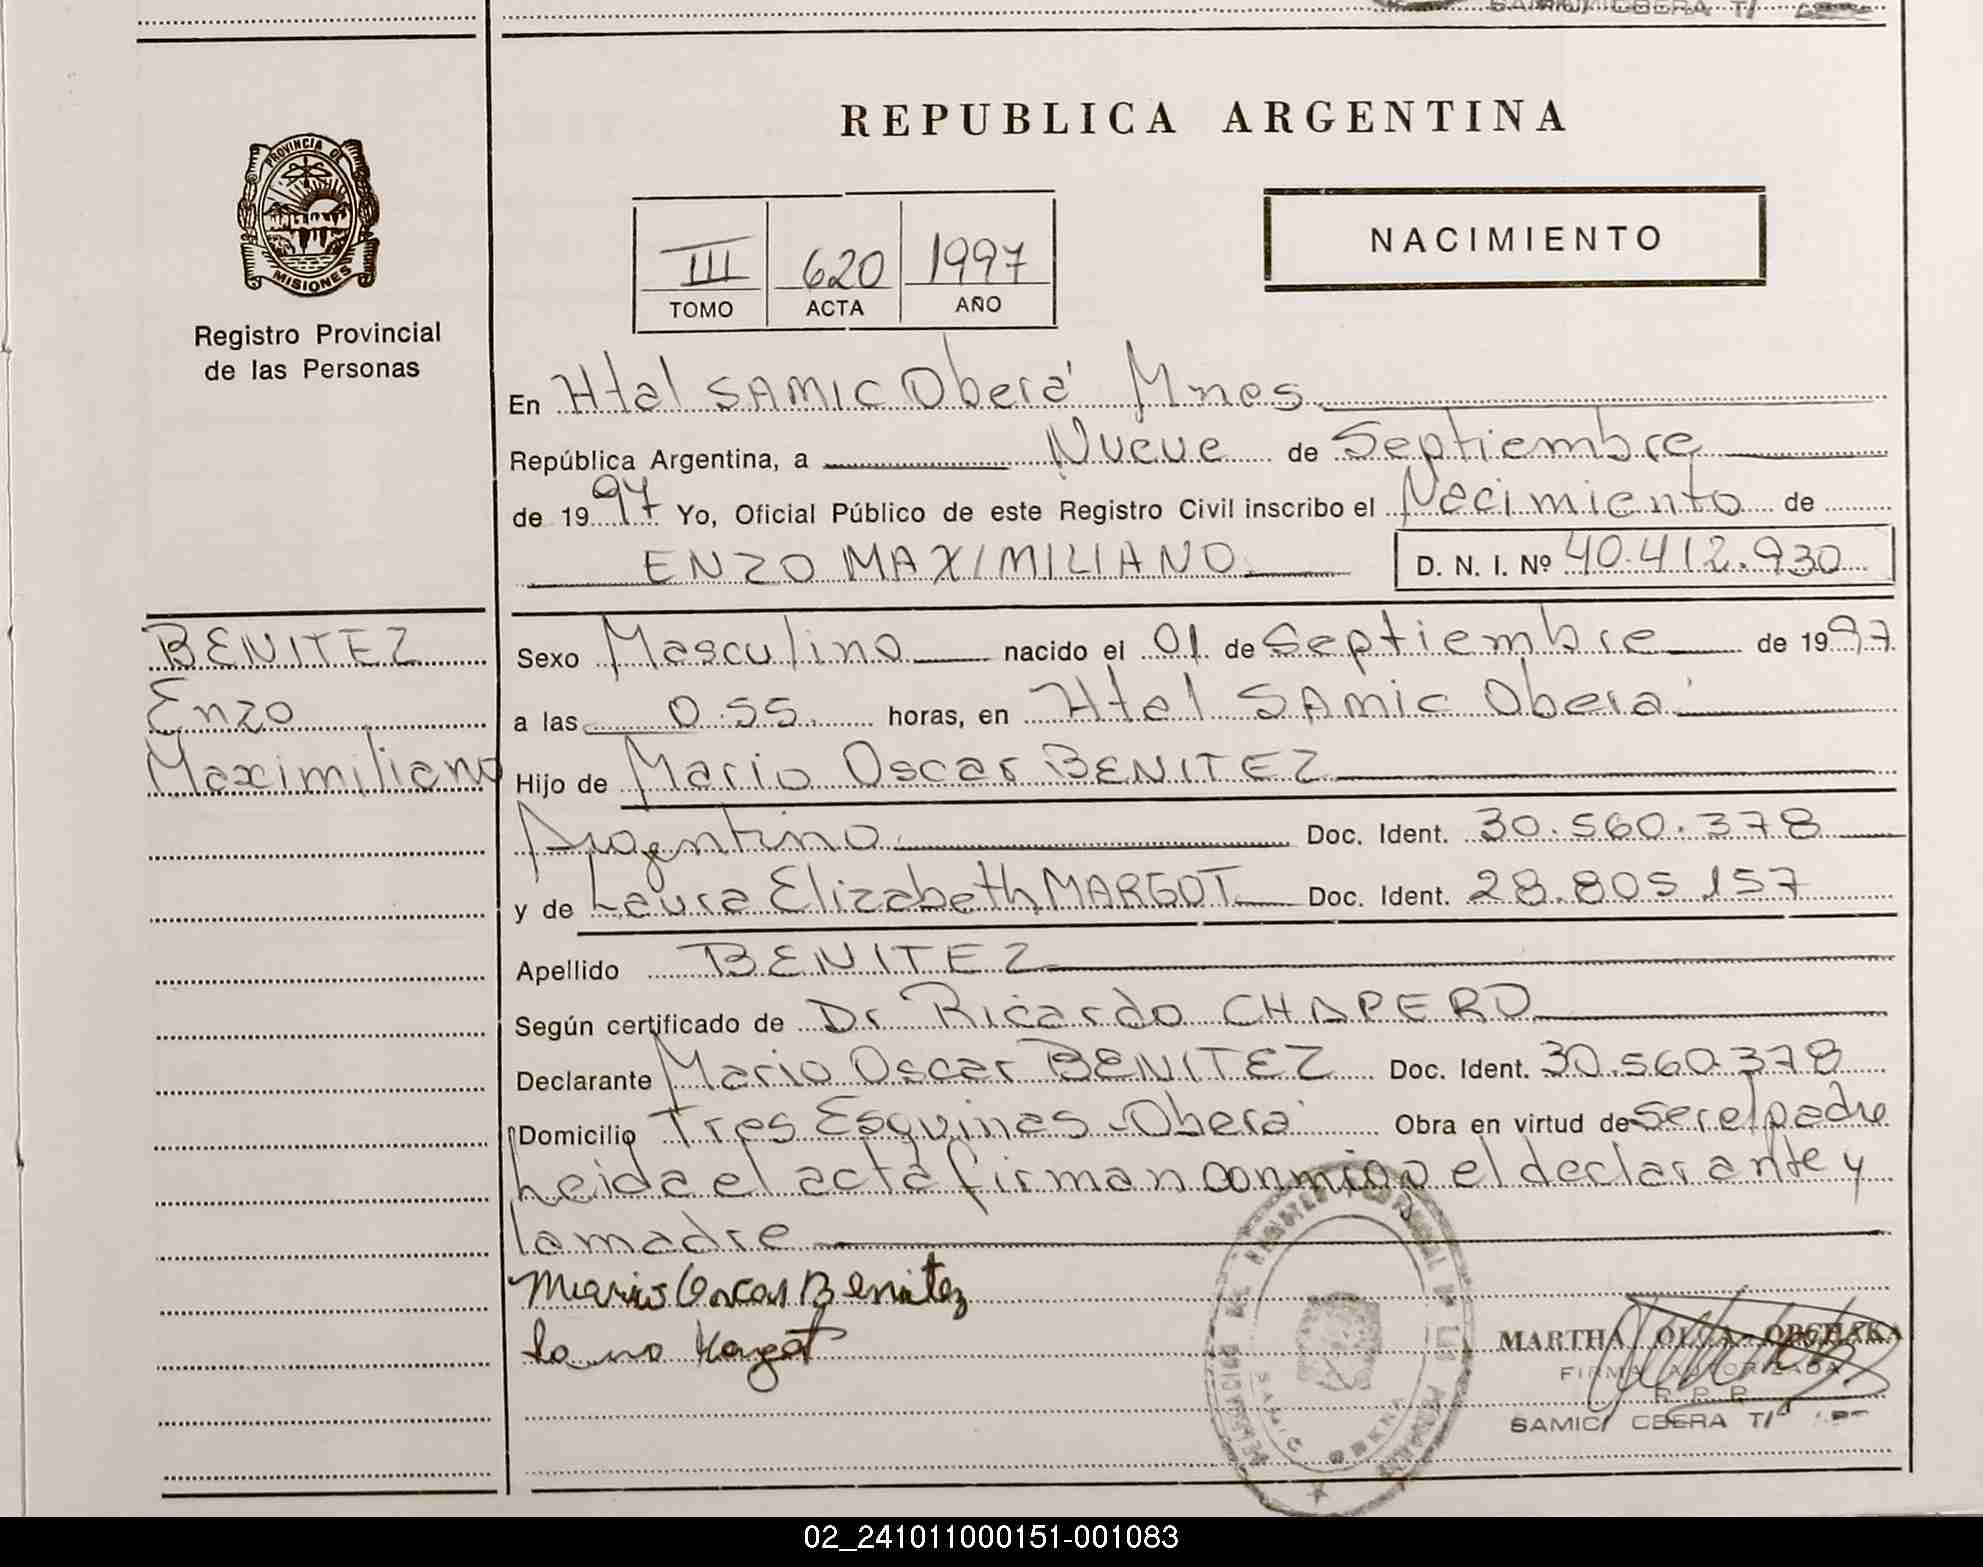 REPUBLICA ARGENTINA
PROVINCIA DE
MISIONES
Registro Provincial
de las Personas
III 620 1997
TOMO ACTA AÑO
NACIMIENTO
En Htal SAMIC Oberá Mnes
República Argentina, a Nueve de Septiembre
de 1997 Yo, Oficial Público de este Registro Civil inscribo el Nacimiento de
ENZO MAXIMILIANO D. N. I. Nº 40.412.930
BENITEZ
Enzo
Maximiliano
Sexo Masculino nacido el 01 de Septiembre de 1997
a las 0.55. horas, en Htal SAMIC Oberá
Hijo de Mario Oscar BENITEZ
Argentino Doc. Ident. 30.560.378
y de Laura Elizabeth MARGOT Doc. Ident. 28.805.157
Apellido BENITEZ
Según certificado de Dr Ricardo CHAPERO
Declarante Mario Oscar BENITEZ Doc. Ident. 30.560.378
Domicilio Tres Esquinas - Oberá Obra en virtud de ser el padre
Leida el acta firman conmigo el declarante y
la madre
Mario Oscar Benitez
MARTHA OLGA
FIRMA AUTORIZADA
R. P. P.
SAMIC OBERA T/
02_241011000151-001083